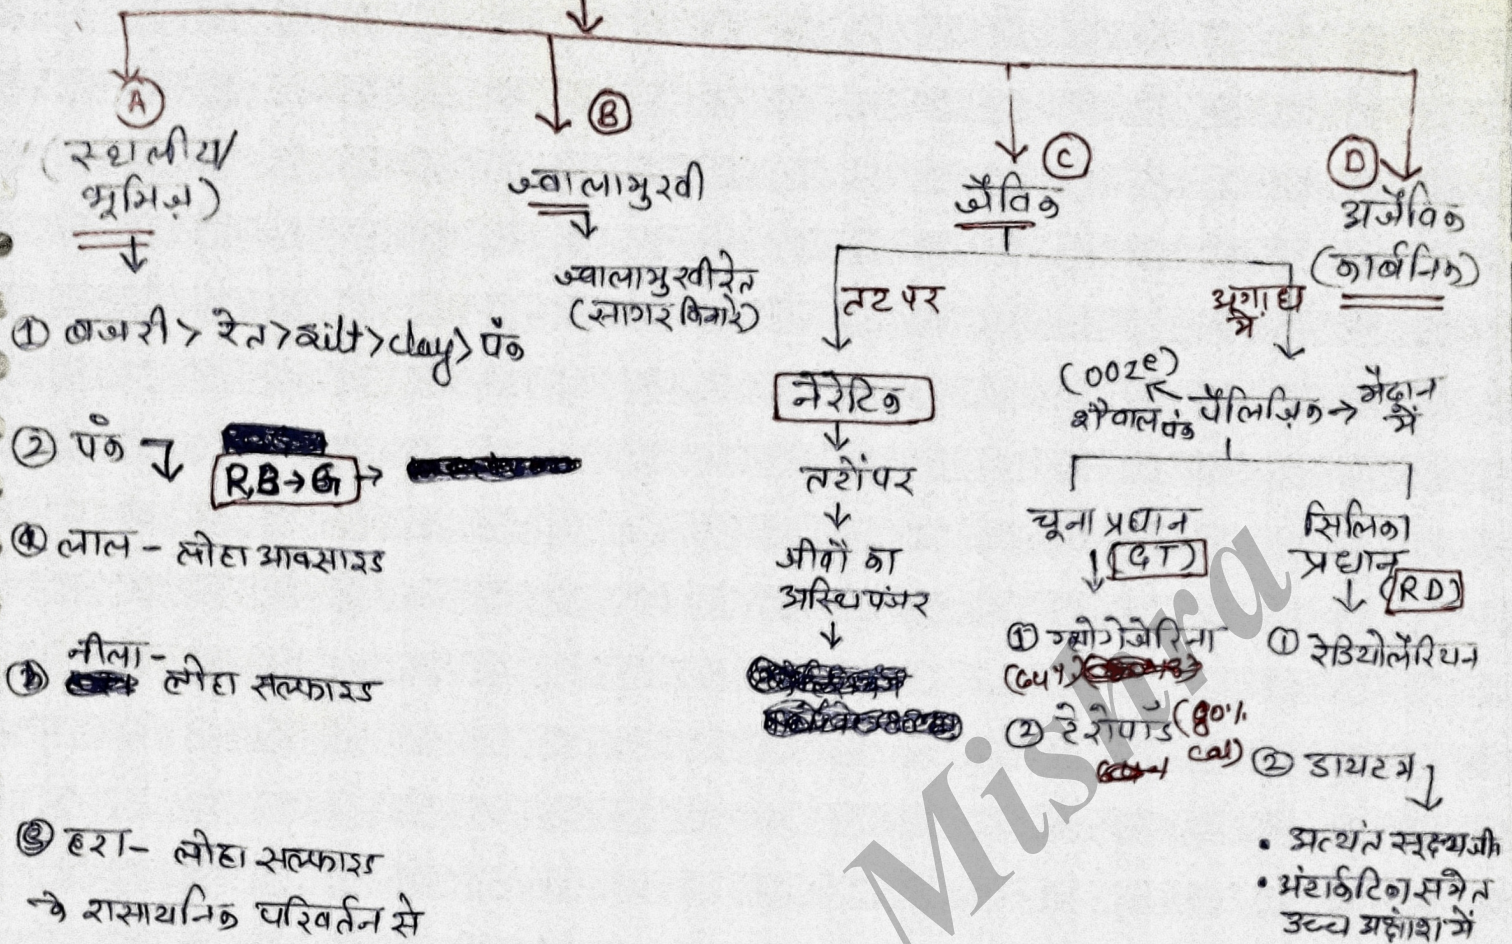 A
(स्थलीय/
भूमिज़)
① बजरी > रेत > silt > clay > पंक
② पंक
R,B→G →
ⓐ लाल - लोहा आक्साइड
ⓑ नीला - लोहा सल्फाइड
③ हरा - लोहा सल्फाइड
→ रासायनिक परिवर्तन से
B
ज्वालामुखी
ज्वालामुखी रेत
(सागर किनारे)
C
जैविक
तट पर
नेरेटिक
तटों पर
जीवों का
अस्थि पंजर
अगाध
में
(ooze)
शैवाल पंक पैलिज़िक → मैदान
में
चूना प्रधान
(GT)
① ग्लोगेबेरिना
② टेरोपाड (80%
cal)
सिलिका
प्रधान
(RD)
① रेडियोलेरियन
② डायटम
• अत्यंत सूक्ष्म जीव
• अंटार्कटिका समेत
उच्च अक्षांश में
D
अजैविक
(कार्बनिक)
Mishra